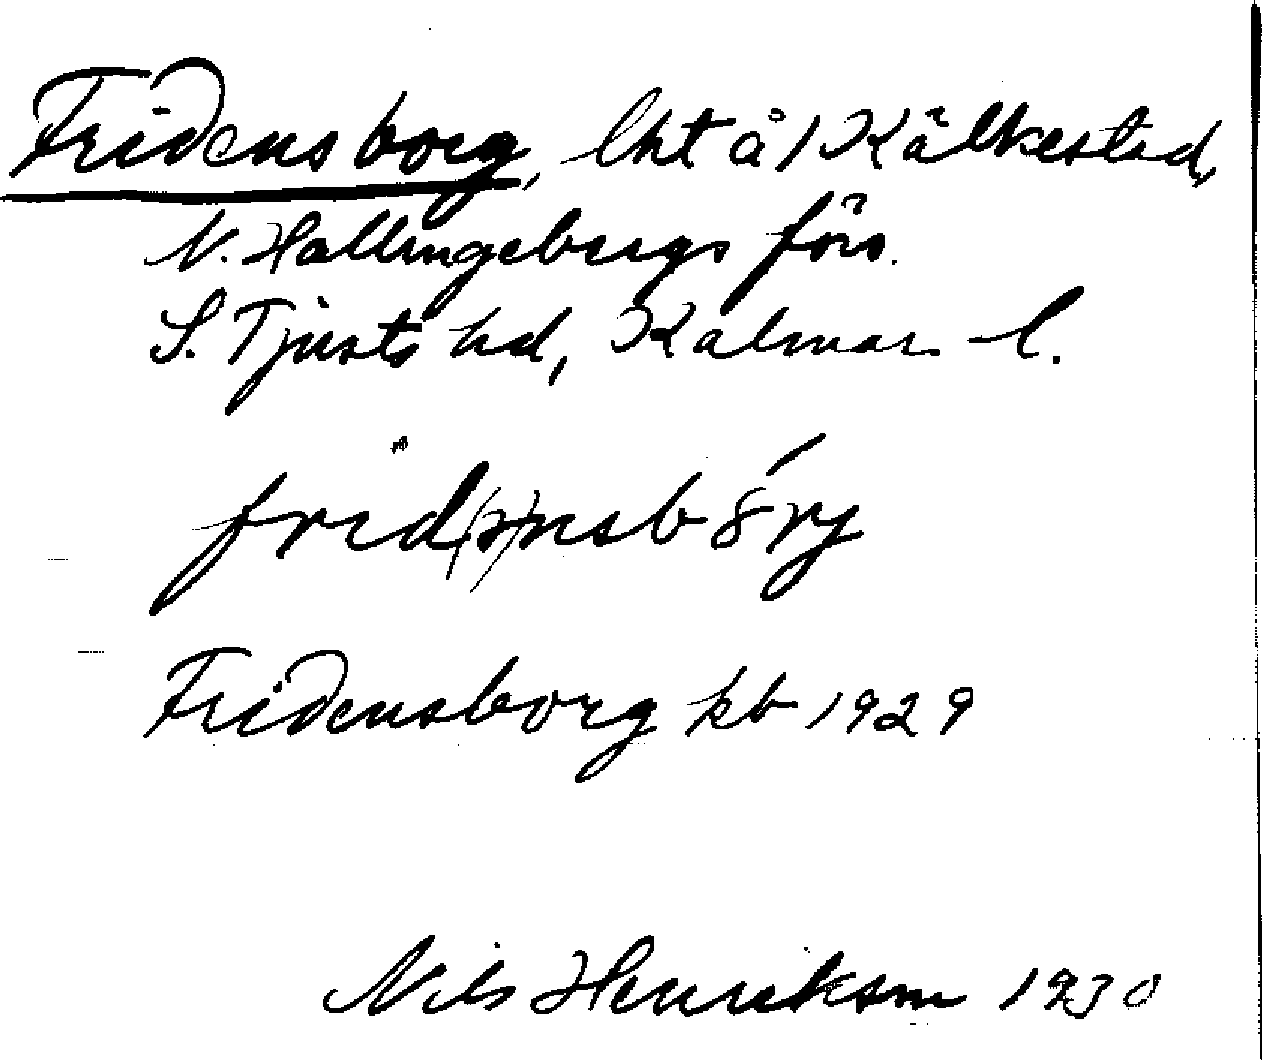 Fridensborg, lht å 1 Kälkestad,
N. Hallingebergs förs.
S. Tjusts hd, Kalmar l.
Fridensborg kb 1929
Nils Henrikson 1930